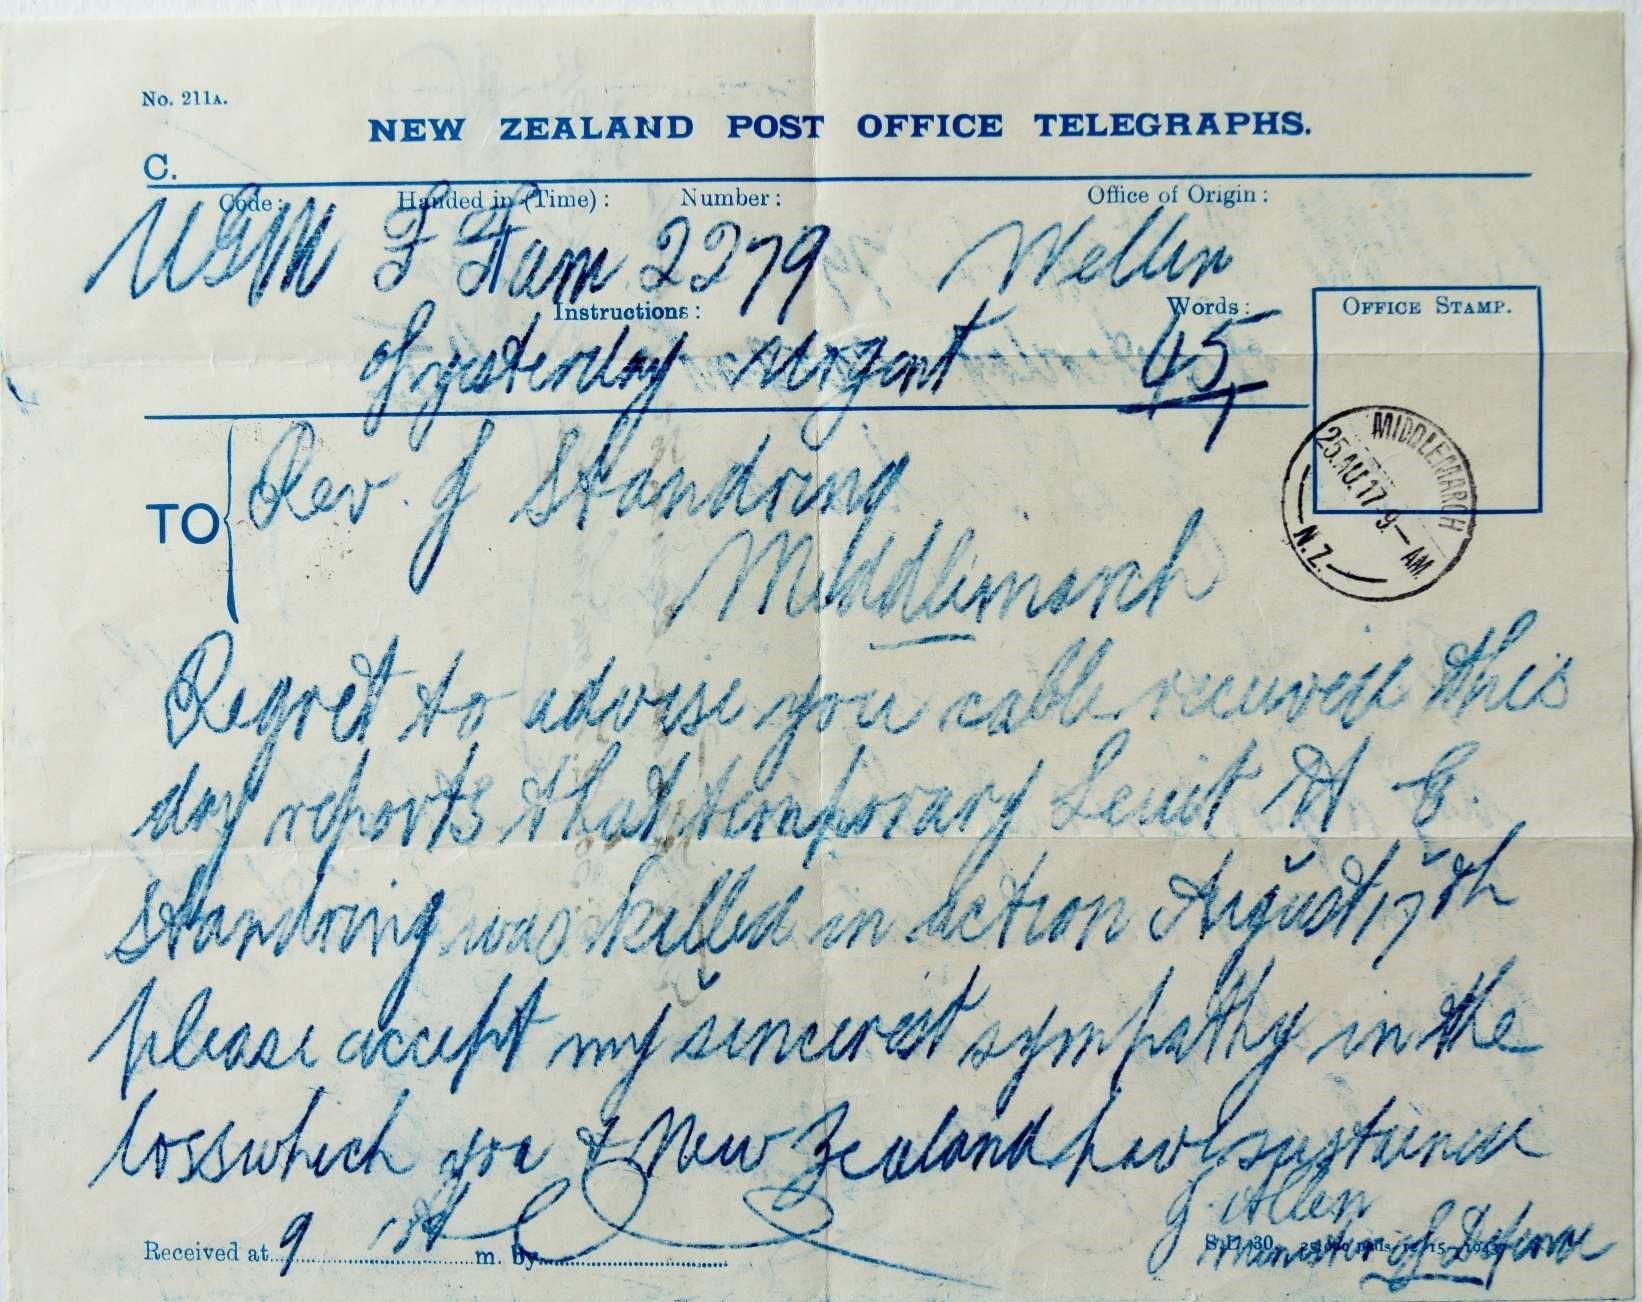 No. 211A.
NEW ZEALAND POST OFFICE TELEGRAPHS.
C.
Code: Handed in (Time): Number: Office of Origin:
2279 Wellin
Instructions: Words:
of yesterday urgent 45
OFFICE STAMP.
MIDDLEMARCH
25 AU 17 9 — AM
N.Z.
TO Rev. J Standring
Middlemarch
Regret to advise you cable received this
day reports that temporary Lieut H E
Standring was killed in action August 17th
please accept my sincerest sympathy in the
loss which you & New Zealand have sustained
J Allen
Minister of Defence
Received at 9 A m. by